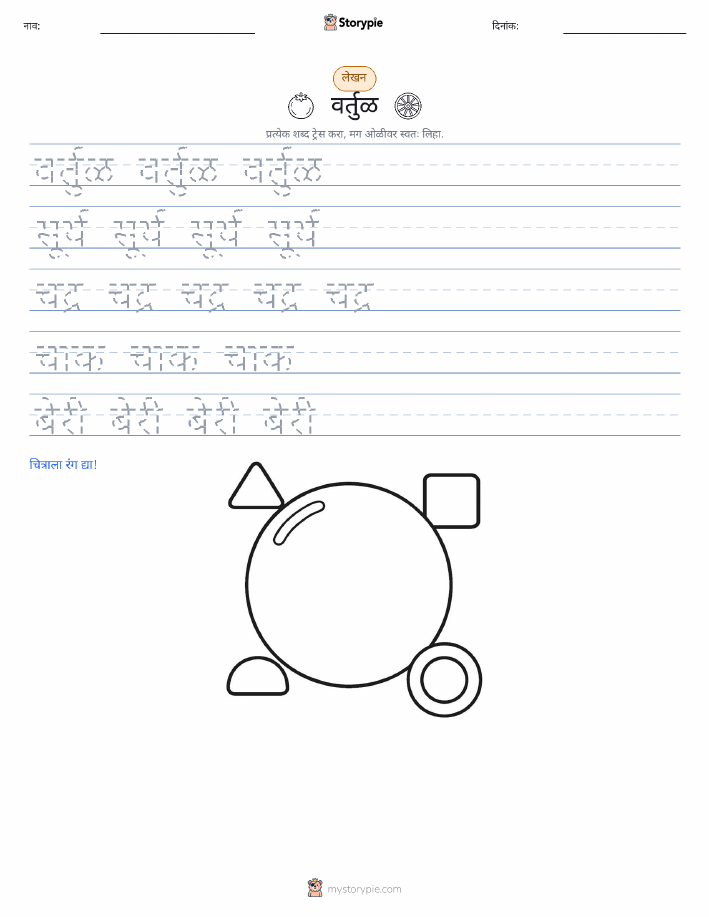 नाव: Storypie दिनांक:
लेखन
वर्तुळ
प्रत्येक शब्द ट्रेस करा, मग ओळीवर स्वतः लिहा.
वर्तुळ वर्तुळ वर्तुळ
सूर्य सूर्य सूर्य सूर्य
चंद्र चंद्र चंद्र चंद्र चंद्र
चाक चाक चाक
बेरी बेरी बेरी बेरी
चित्राला रंग द्या!
mystorypie.com